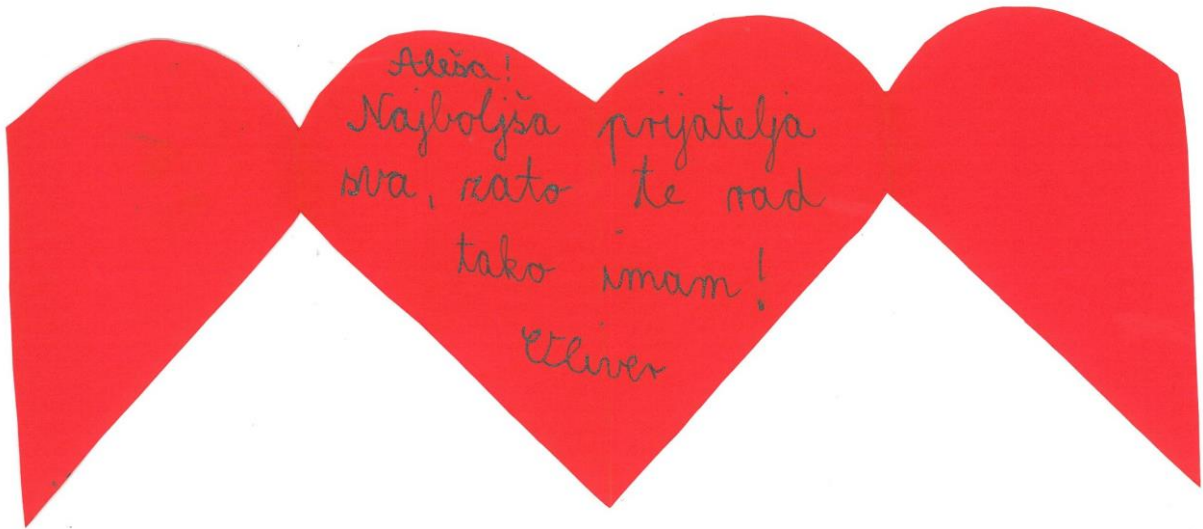 Aleša!
Najboljša prijatelja
sva, zato te rad
tako imam!
Oliver